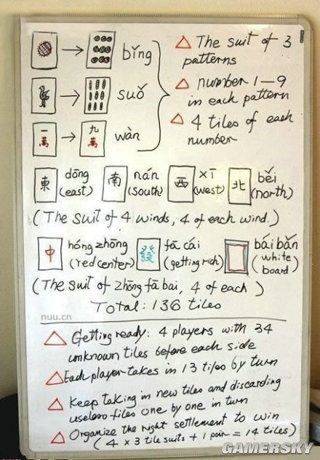 bǐng
suǒ
一萬 九萬 wàn
△ The suit of 3 patterns
△ number 1-9 in each pattern
△ 4 tiles of each number
東 dōng (east) 南 nán (south) 西 xī (west) 北 běi (north)
(The suit of 4 winds, 4 of each wind.)
中 hóng zhōng (red center) fā cái (getting rich) bái bǎn (white board)
(The suit of zhōng fā bái, 4 of each)
Total: 136 tiles
nuu.cn
△ Getting ready: 4 players with 34
unknown tiles before each side
△ Each player takes in 13 tiles by turn
△ Keep taking in new tiles and discarding
useless tiles one by one in turn
△ Organize the right settlement to win
(4 x 3 tile suits + 1 pair = 14 tiles)
GAMERSKY